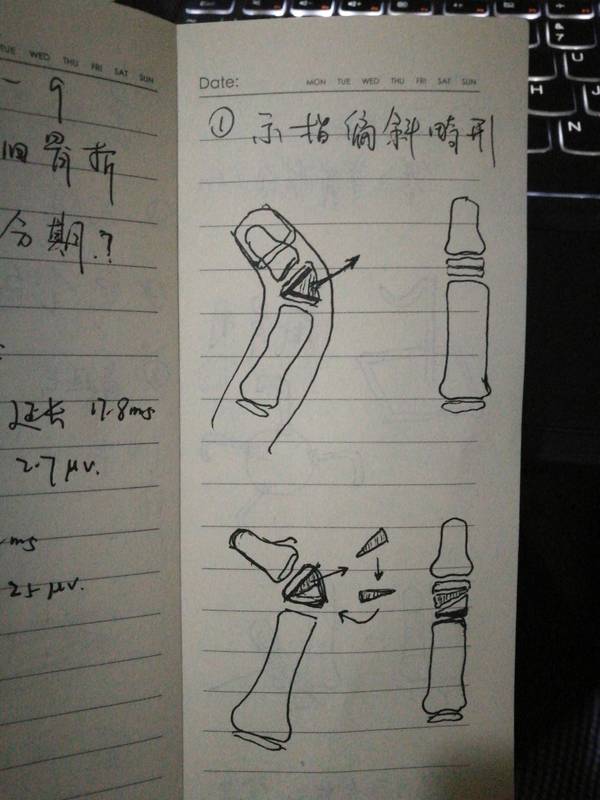 TUE WED THU FRI SAT SUN
一 9
旧骨折
分期?
延长 17.8ms
2.7 μv.
ms
25 μv.
Date: MON TUE WED THU FRI SAT SUN
① 示指偏斜畸形